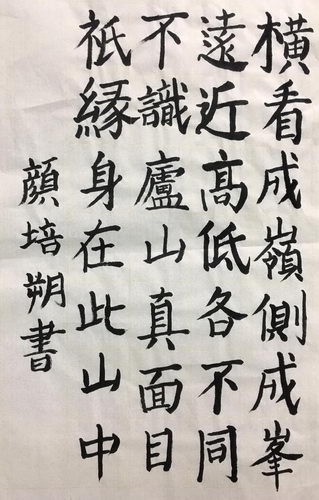 橫看成嶺側成峯
遠近高低各不同
不識廬山真面目
祇緣身在此山中
顏培朔書